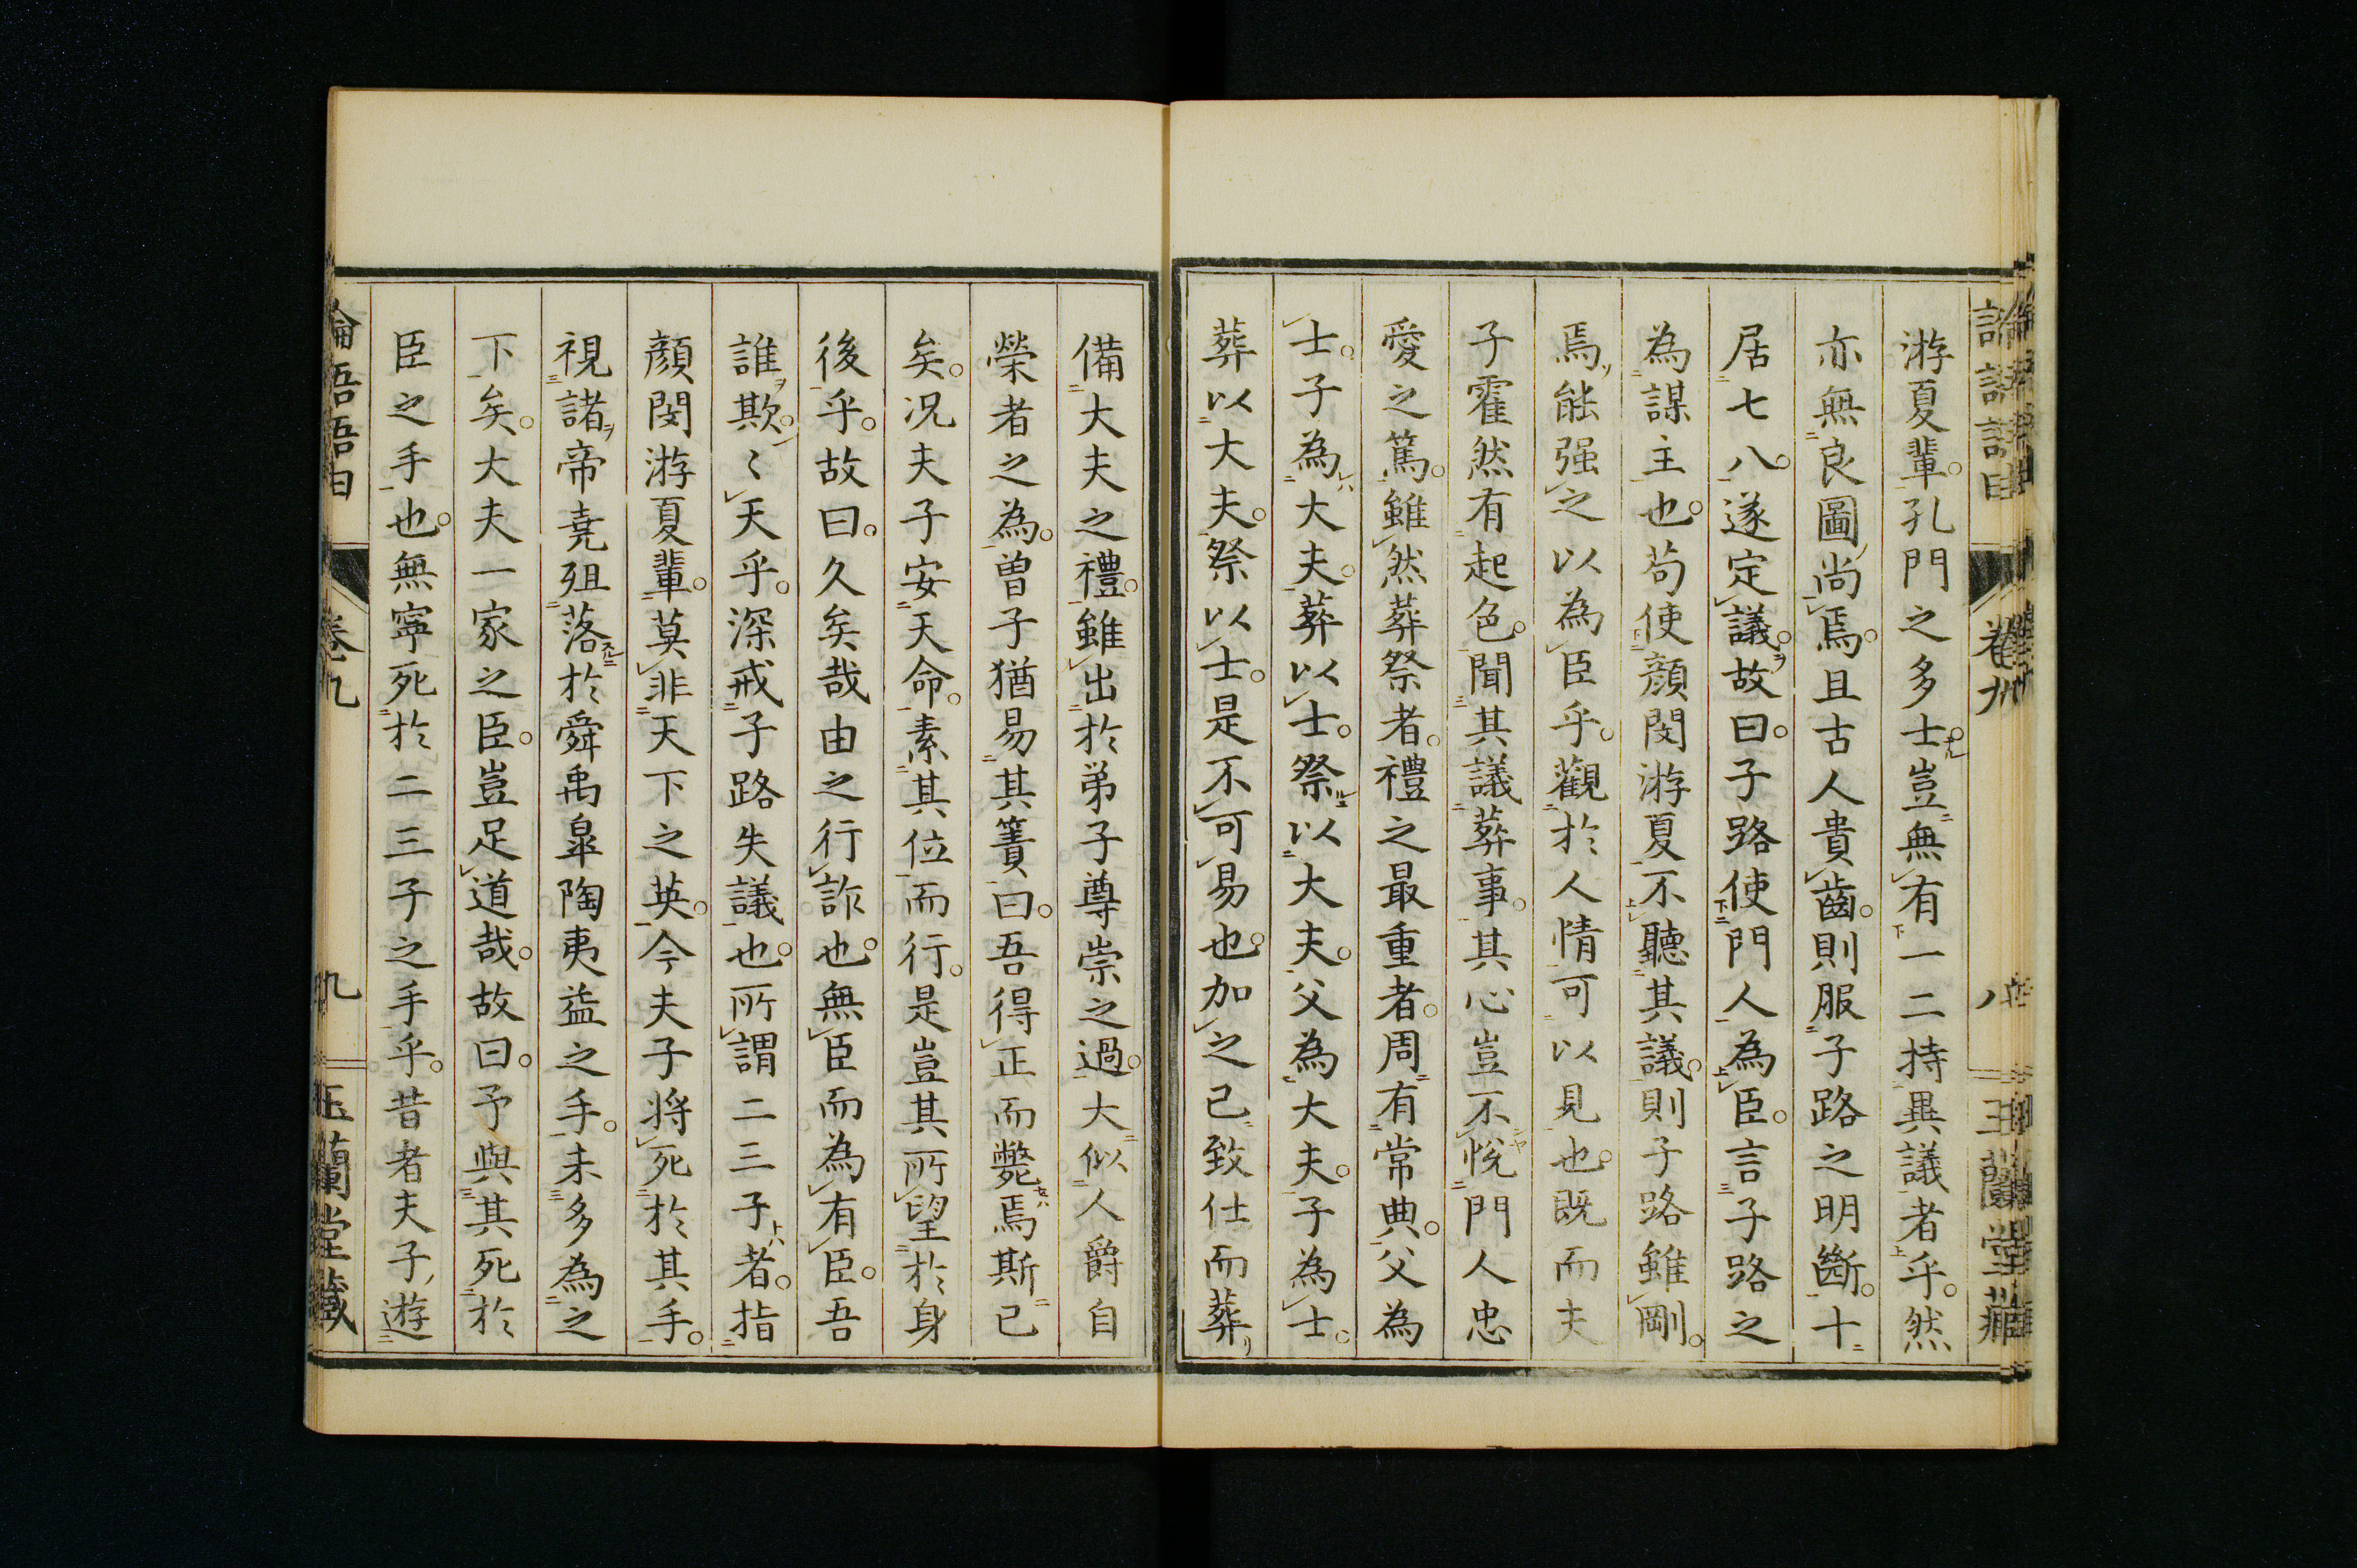 游夏輩。孔門之多士。豈無有一二持異議者乎。然
亦無良圖尚焉。且古人貴齒。則服子路之明斷。十
居七八。遂定議。故曰。子路使門人為臣。言子路之
為謀主也。苟使顏閔游夏不聽其議。則子路雖剛。
焉能强之以為臣乎。觀於人情可以見也。既而夫
子霍然有起色。聞其議葬事。其心豈不悅門人忠
愛之篤。雖然葬祭者。禮之最重者。周有常典。父為
士。子為大夫。葬以士。祭以大夫。父為大夫。子為士。
葬以大夫。祭以士。是不可易也。加之已致仕而葬
備大夫之禮。雖出於弟子尊崇之過。大似人爵自
榮者之為。曾子猶易其簀曰。吾得正而斃焉斯已
矣。况夫子安天命。素其位而行。是豈其所望於身
後乎。故曰。久矣哉由之行詐也。無臣而為有臣。吾
誰欺。〻天乎。深戒子路失議也。所謂二三子者。指
顏閔游夏輩。莫非天下之英。今夫子將死於其手。
視諸帝堯殂落於舜禹皐陶夷益之手。未多為之
下矣。大夫一家之臣。豈足道哉。故曰。予與其死於
臣之手也。無寧死於二三子之手乎。昔者夫子遊
卷九
九
玉蘭堂藏